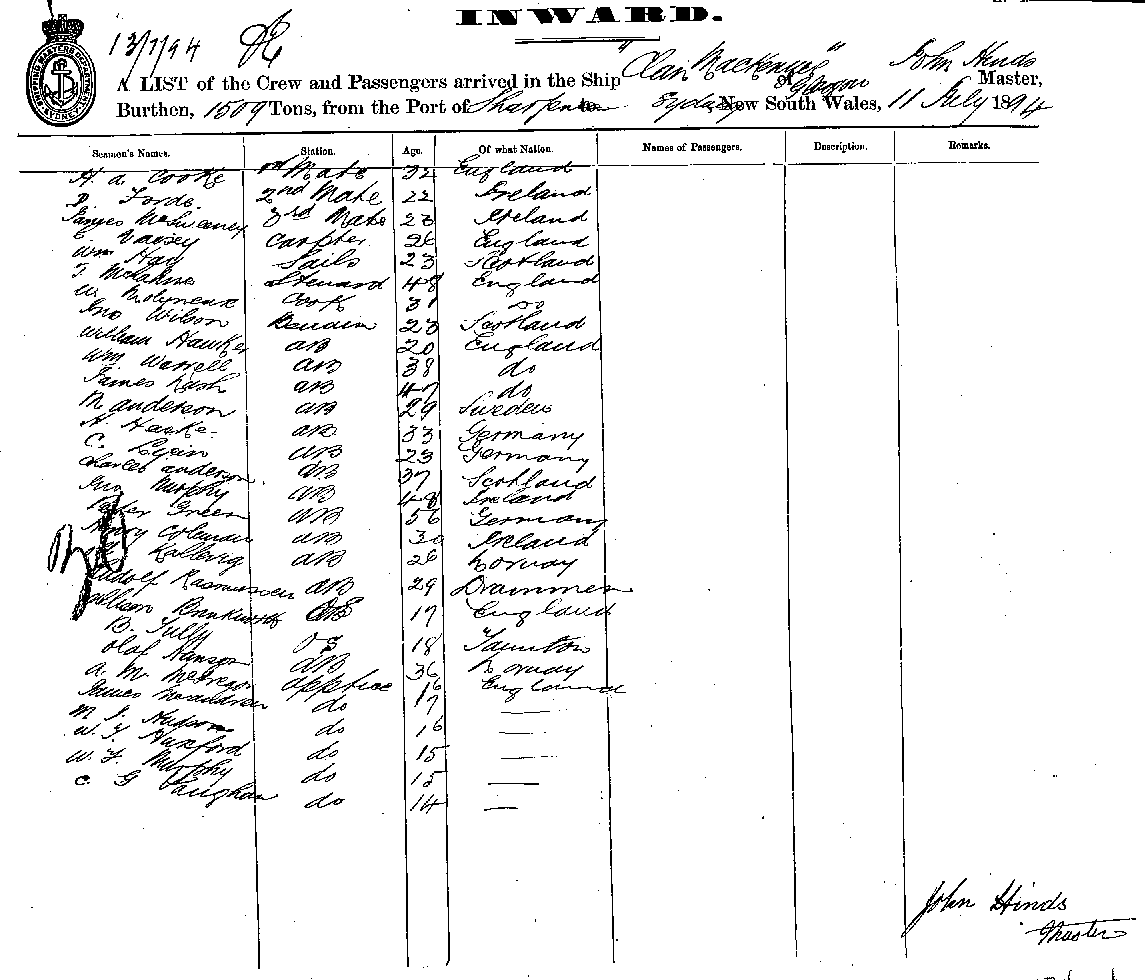 INWARD.
13/7/94
A LIST of the Crew and Passengers arrived in the Ship "Clan Mackenzie" of Glasgow John Hinds Master,
Burthen, 1509 Tons, from the Port of Sharpness Sydney New South Wales, 11 July 1894
SHIPPING MASTERS DEPARTMENT SYDNEY
Seamen's Names. Station. Age. Of what Nation. Names of Passengers. Description. Remarks.
H A Cooke Mate 32 England
D. Forde 2nd Mate 22 Ireland
James McSweeney 3rd Mate 23 Ireland
Vaisey Carpter 26 England
Wm Hay Sails 23 Scotland
T. Steward 48 England
W. Molyneux Cook 31 do
Jno Wilson 23 Scotland
William Hawker AB 20 England
Wm Warrell AB 38 do
James Nash AB 47 do
Anderson AB 29 Sweden
H. Haske AB 33 Germany
C. AB 23 Germany
Charles Anderson AB 37 Scotland
Jno Murphy AB 48 Ireland
Peter Green AB 56 Germany
Henry Coleman AB 30 Ireland
Kallevig AB 26 Norway
Rudolf Rasmussen AB 29 Drammen
William OS 17 England
B. Tully OS 18 Taunton
Olaf Hanson AB 36 Norway
A. M. McGregor Apptice 16 England
James do 17
M J Hudson do 16
W. Y Huxford do 15
W. F. Murphy do 15
C G Vaughan do 14
John Hinds
Master